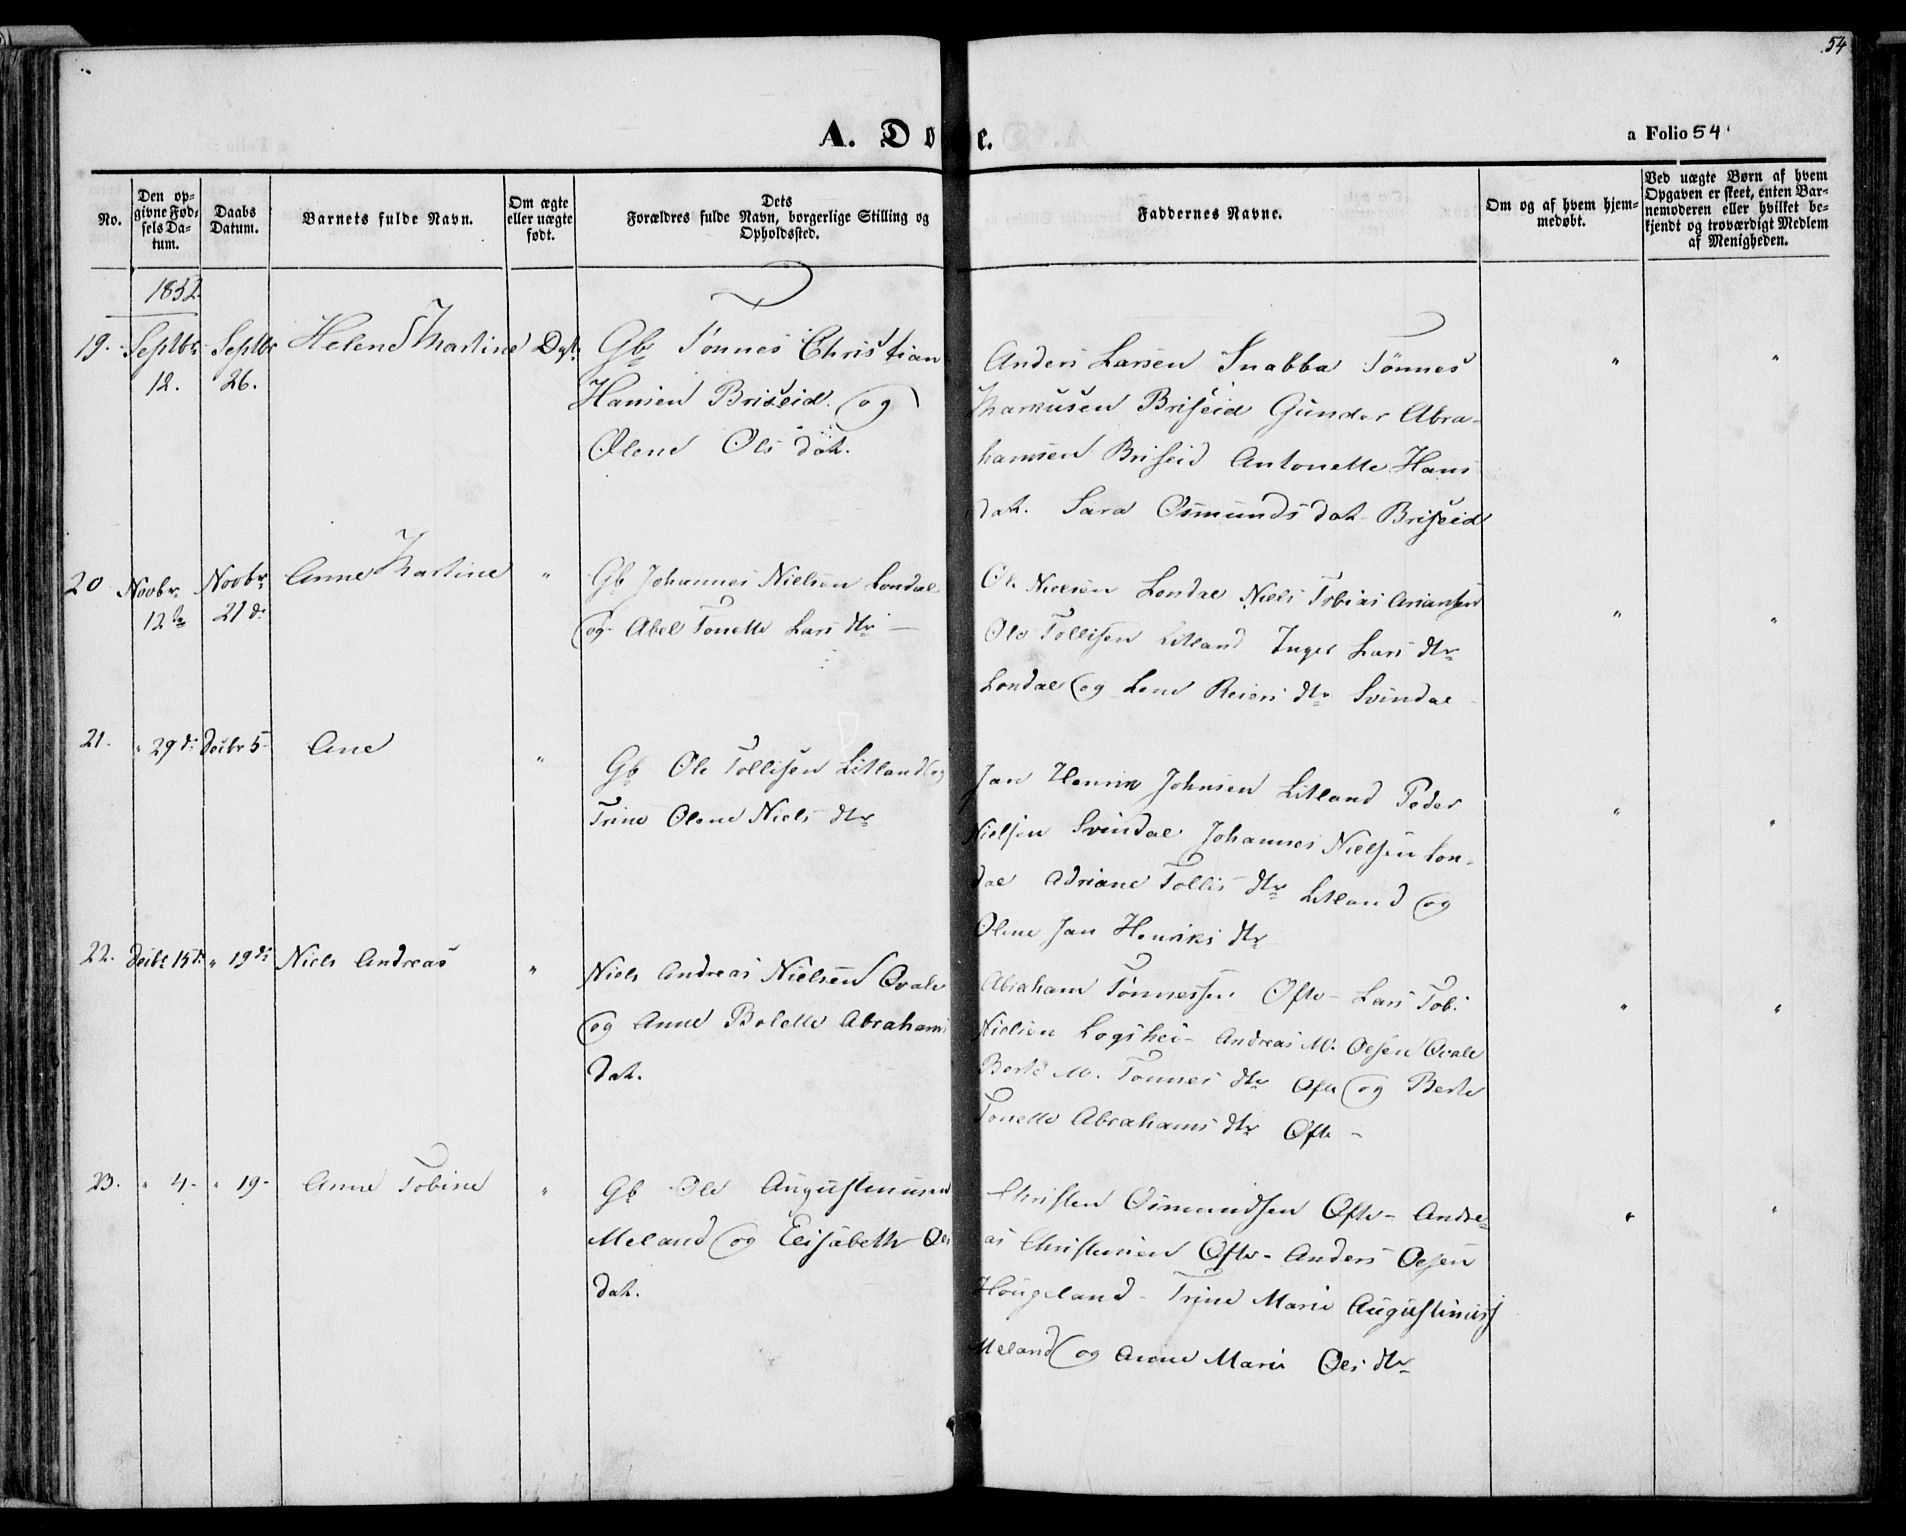 54
A. Døbte.
a Folio 54
No.
Den opgivne Fødsels Datum.
Daabs Datum.
Barnets fulde Navn.
Om ægte eller uægte født.
Dets Forældres fulde Navn, borgerlige Stilling og Opholdssted.
Faddernes Navne.
Om og af hvem hjemmedøbt.
Ved uægte Børn af hvem Opgaven er skeet, enten Barnemoderen eller hvilket bekjendt og troværdigt Medlem af Menigheden.
1852
19. Septbr 12. Septbr 26. Helene Martine Ægt.
Gb Tönnes Christian
Hansen Briseid og
Olene Ols dat.
Anders Larsen Snabba Tönnes
Markusen Briseid Gunder Abra-
hamsen Briseid Antonette Hans
dat. Sara Osmunds dat Briseid
" "
20 Novbr 12te Novbr 21de Anne Martine "
Gb Johannes Nielsen Londal
og Abel Tonette Lars dtr —
Ole Nielsen Londal Niels Tobias
Ole Tollisen Litland Inger Lars dtr
Londal og Lene Reiers dtr Svindal
" "
21. " 29de Decbr 5 Ane "
Gb Ole Tollisen Litland og
Trine Olene Niels dtr
Jan Henrik Johnsen Litland Peder
Nielsen Svindal Johannes Nielsen Lon-
dal Adriane Tollis dtr Litland og
Oline Jan Henriks dtr
" "
22. Decbr 15de " 19de Niels Andreas "
Niels Andreas Nielsen Qvale
og Anne Bolette Abrahams
dat.
Abraham Tönnessen Ofte - Lars Tob.
Nielsen Logshei - Andreas M. Olsen Qvale
Berte M. Tönnes dtr Ofte og Berte
Tonette Abrahams dtr Ofte -
" "
23. " 4 - " 19 - Anne Tobine "
Gb Ole Augustinusen
Meland og Elisabeth Ols
dat.
Christen Osmundsen Ofte - Andre-
as Christensen Ofte - Anders Olsen
Hougeland - Trine Marie Augustinus
Meland og Anne Marie Ols dtr
" "